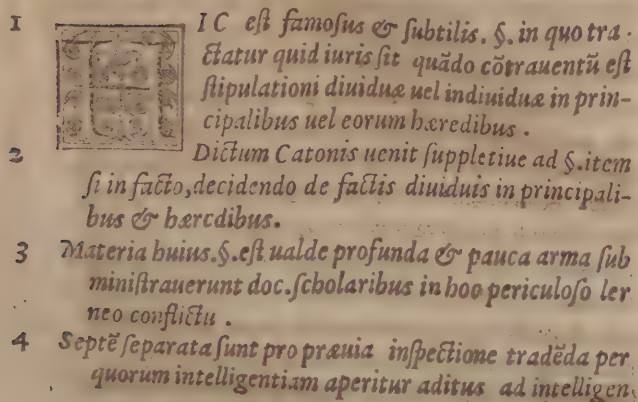 1 HIC eſt famoſus & ſubtilis. §. in quo tra-
ctatur quid iuris ſit quãdo cõtrauentũ eſt
ſtipulationi diuiduæ uel indiuiduæ in prin-
cipalibus uel eorum hæredibus.
2 Dictum Catonis uenit ſuppletiue ad §. item
ſi in facto, decidendo de factis diuiduis in principali-
bus & hæredibus.
3 Materia huius. §. eſt ualde profunda & pauca arma ſub
miniſtrauerunt doc. ſcholaribus in hoo periculoſo ler
neo conflictu.
4 Septẽ ſeparata ſunt pro præuia inſpectione tradẽda per
quorum intelligentiam aperitur aditus ad intelligen